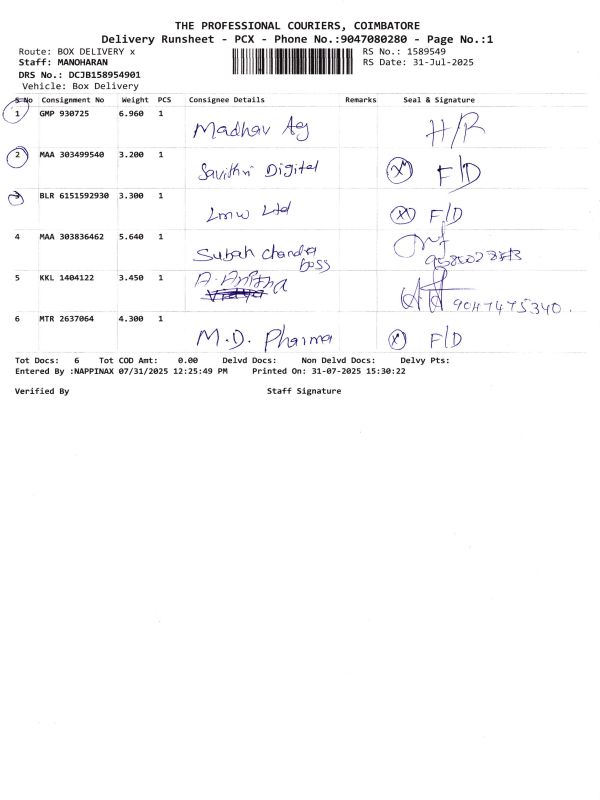 THE PROFESSIONAL COURIERS, COIMBATORE
Delivery Runsheet - PCX - Phone No.:9047080280 - Page No.:1
Route: BOX DELIVERY x RS No.: 1589549
Staff: MANOHARAN RS Date: 31-Jul-2025
DRS No.: DCJB158954901
Vehicle: Box Delivery
S No Consignment No Weight PCS Consignee Details Remarks Seal & Signature
1 GMP 930725 6.960 1 Madhav Ag H/R
2 MAA 303499540 3.200 1 Savithri Digital X F/D
3 BLR 6151592930 3.300 1 Lmw Ltd X F/D
4 MAA 303836462 5.640 1 Subah Chandra
boss
5 KKL 1404122 3.450 1 A. Anitha 9047475340.
6 MTR 2637064 4.300 1 M.D. Pharma X F/D
Tot Docs: 6 Tot COD Amt: 0.00 Delvd Docs: Non Delvd Docs: Delvy Pts:
Entered By :NAPPINAX 07/31/2025 12:25:49 PM Printed On: 31-07-2025 15:30:22
Verified By Staff Signature